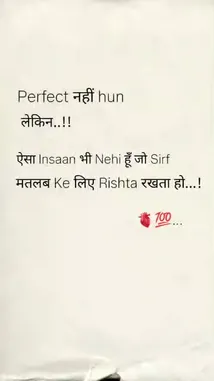 Perfect नहीं hun
लेकिन..!!
ऐसा Insaan भी Nehi हूँ जो Sirf
मतलब Ke लिए Rishta रखता हो...!
🫀 💯...